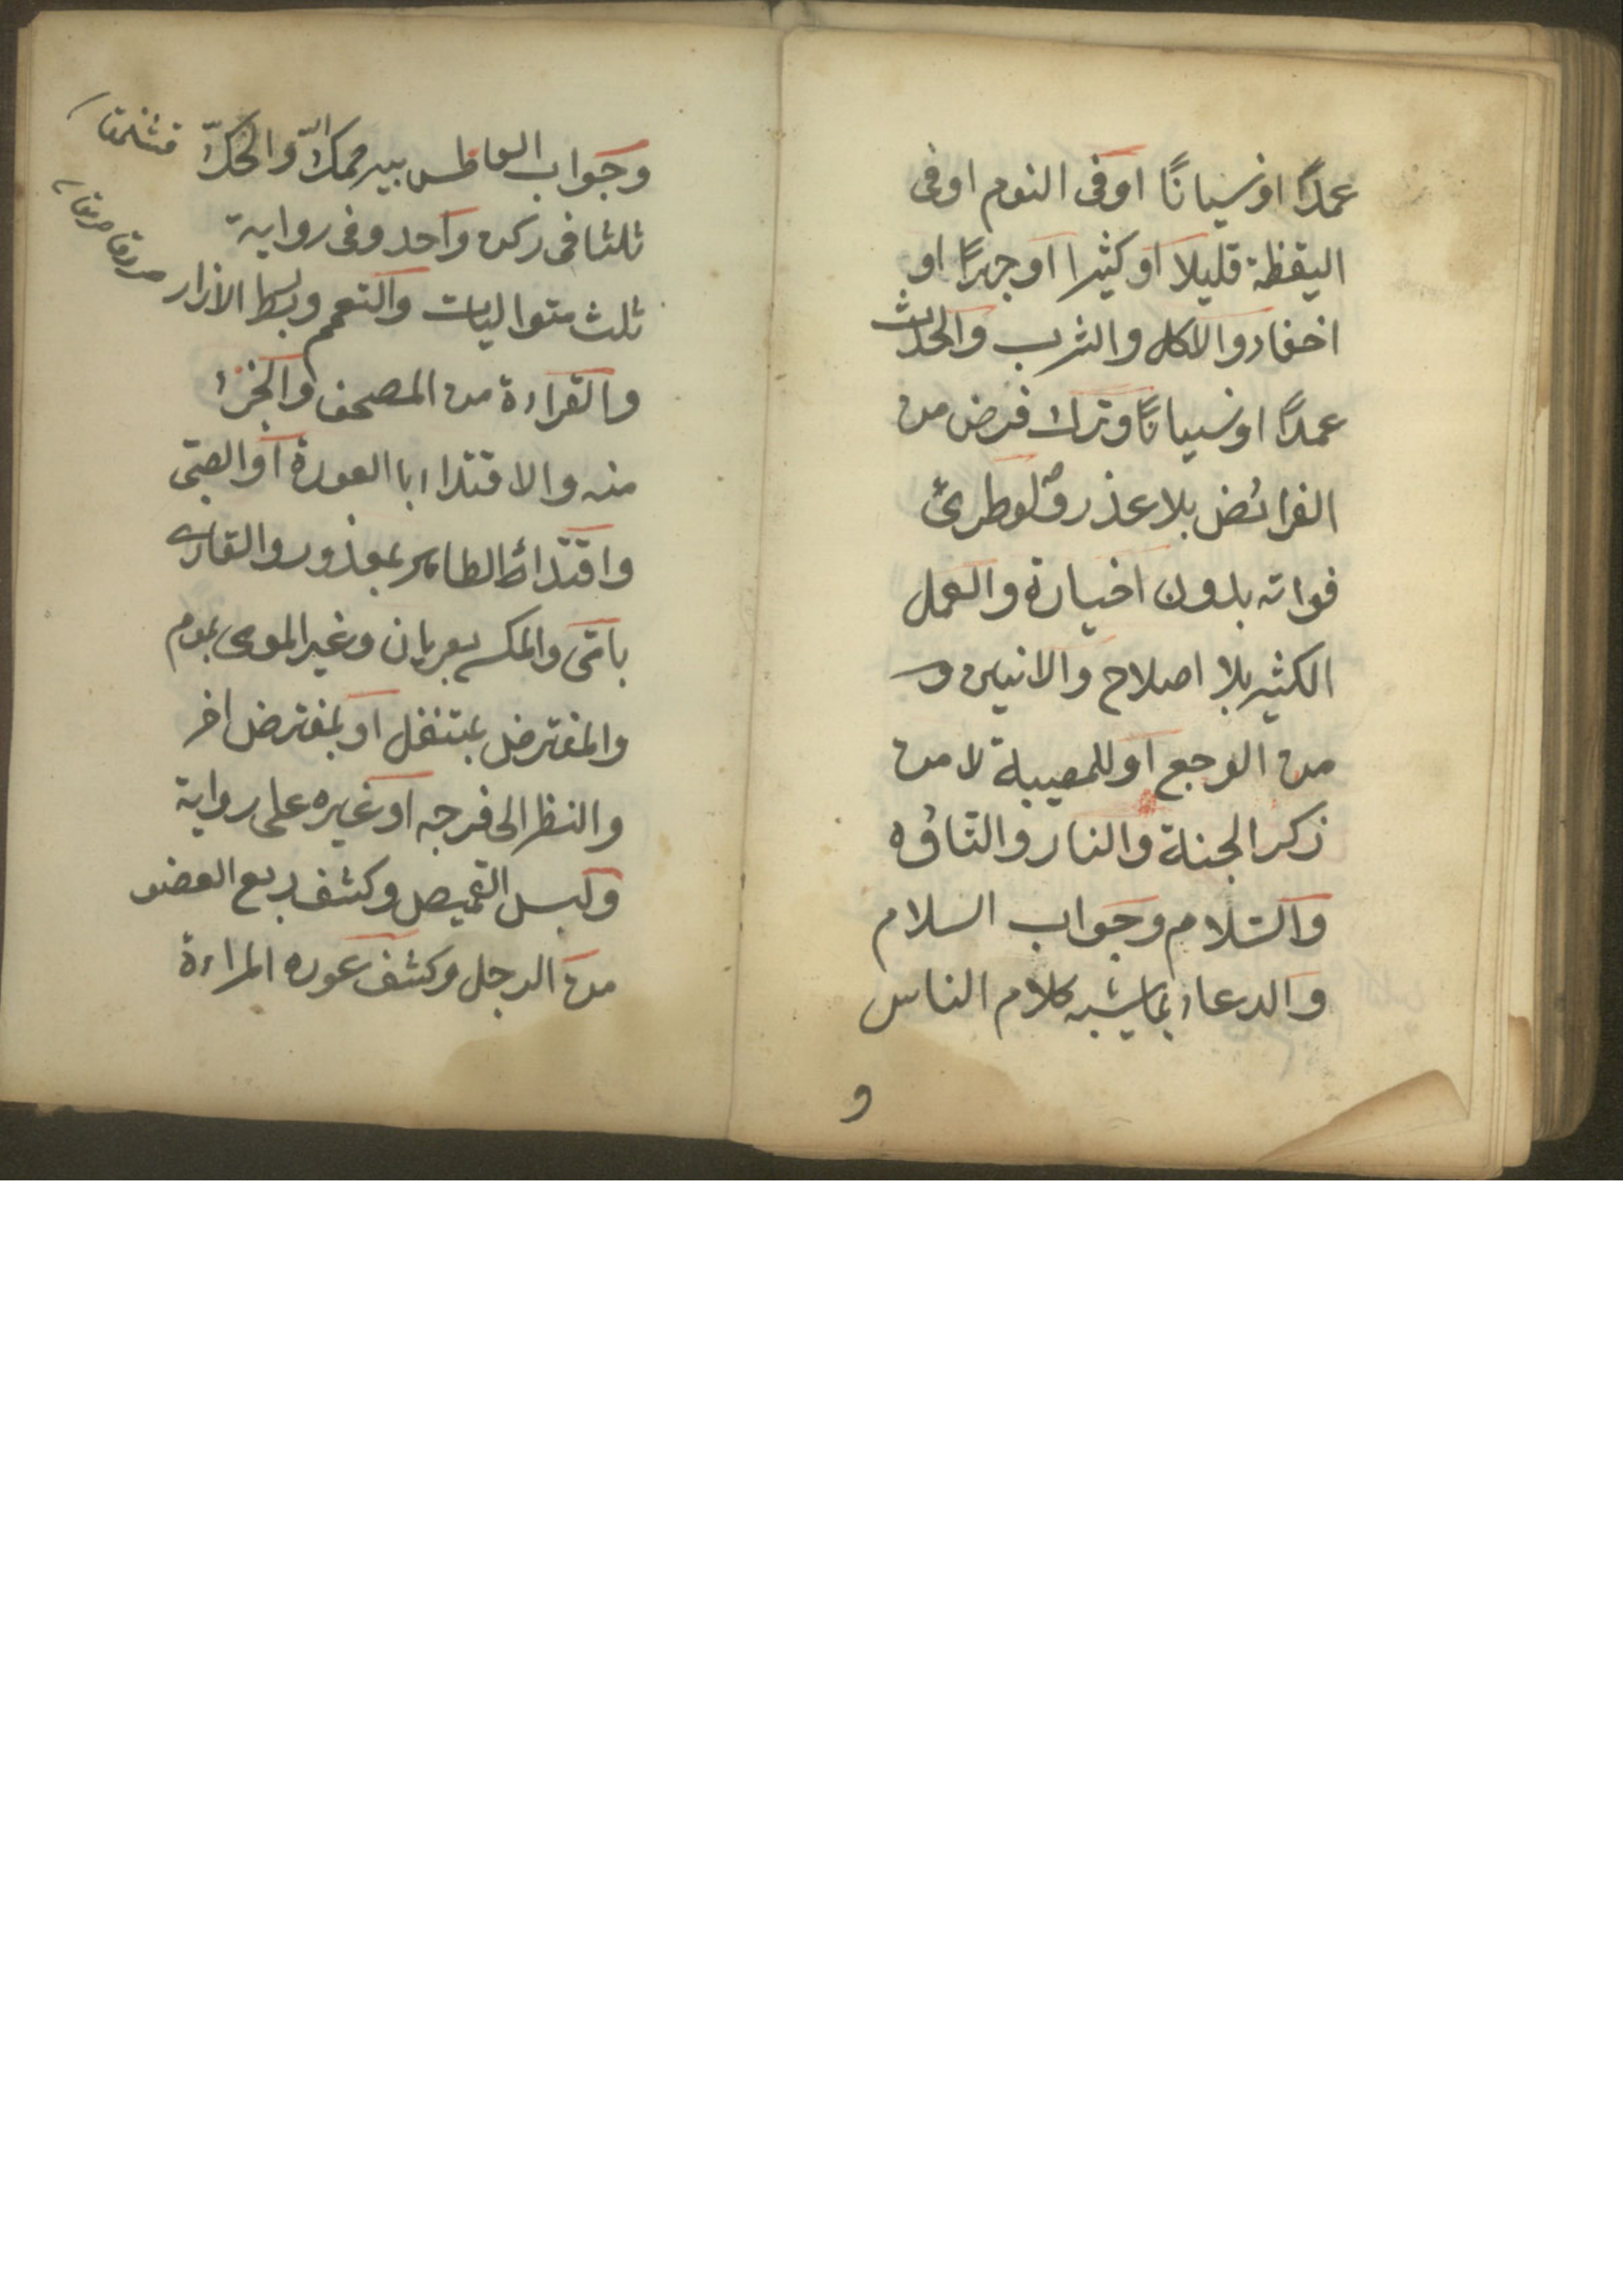 عمدًا اونسيانًا اوفى النوم اوفى
اليقظة قليلا او كثيرا او جهرًا او
اخفاء والاكل والشرب والحدث
عمدًا اونسيانًا وترك فرض من
الفرائض بلا عذر ولوطرئ
فواته بدون اختياره والعمل
الكثير بلا اصلاح والانين و
من الوجع او للمصيبة لا من
ذكر الجنة والنار والتاوه
والسّلام وجواب السلام
والدعاء بمايشبه كلام الناس
و
وجواب العاطس بيرحمك الله والحكّ
ثلثا فى ركن واحد وفى رواية
ثلث متواليات والتعمم وبسط الازار
والقراءة من المصحف والجزء
منه والاقتداء باالعورة او الصبى
واقتداء الطاهر بمعذور والقارى
بامّى والمكسى بعريان وغير المومى بموم
والمفترض بمتنفل او بمفترض اخر
والنظر الى فرجه او غيره على رواية
ولبس القميص وكشف ربع العضو
من الرجل وكشف عوره المراءة